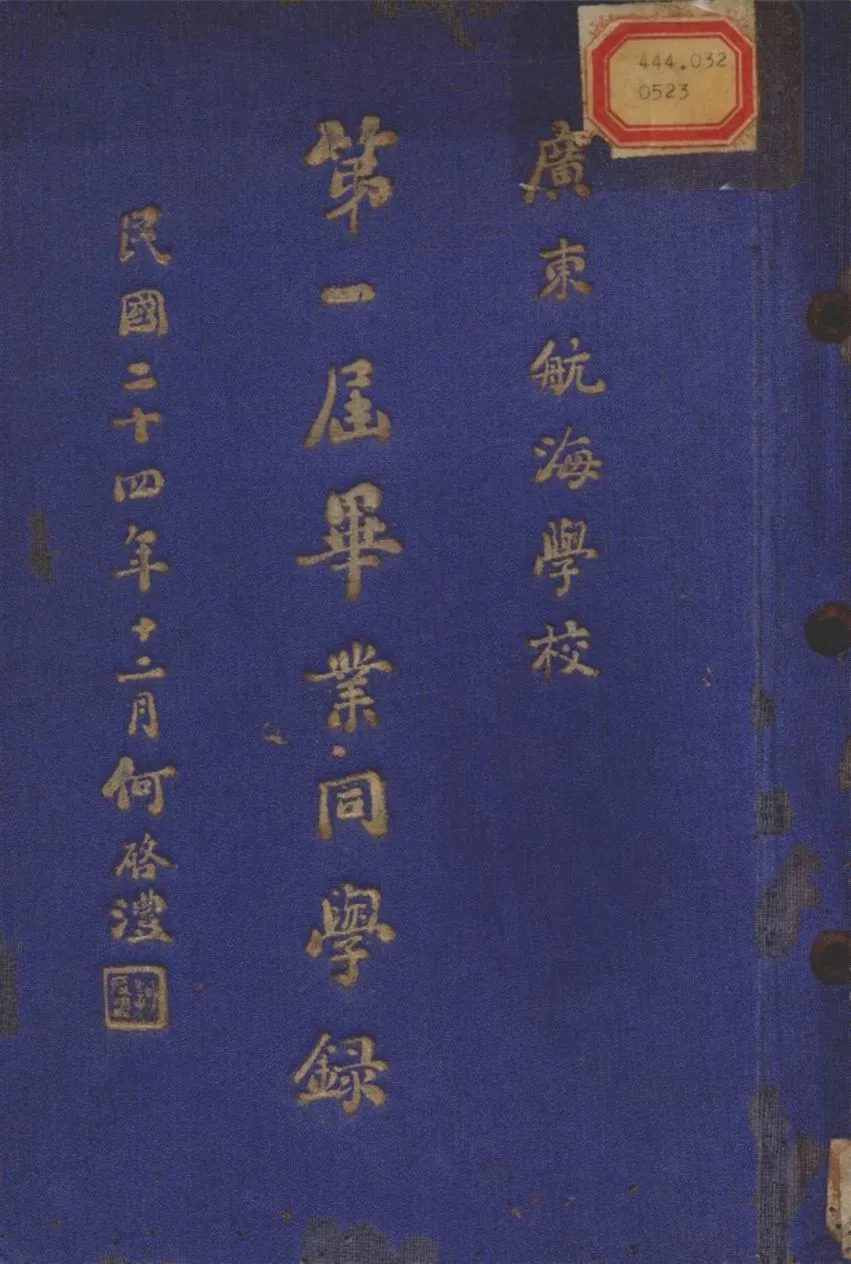 444.032
0523
廣東航海學校
第一屆畢業同學錄
民國二十四年十二月何啓澧